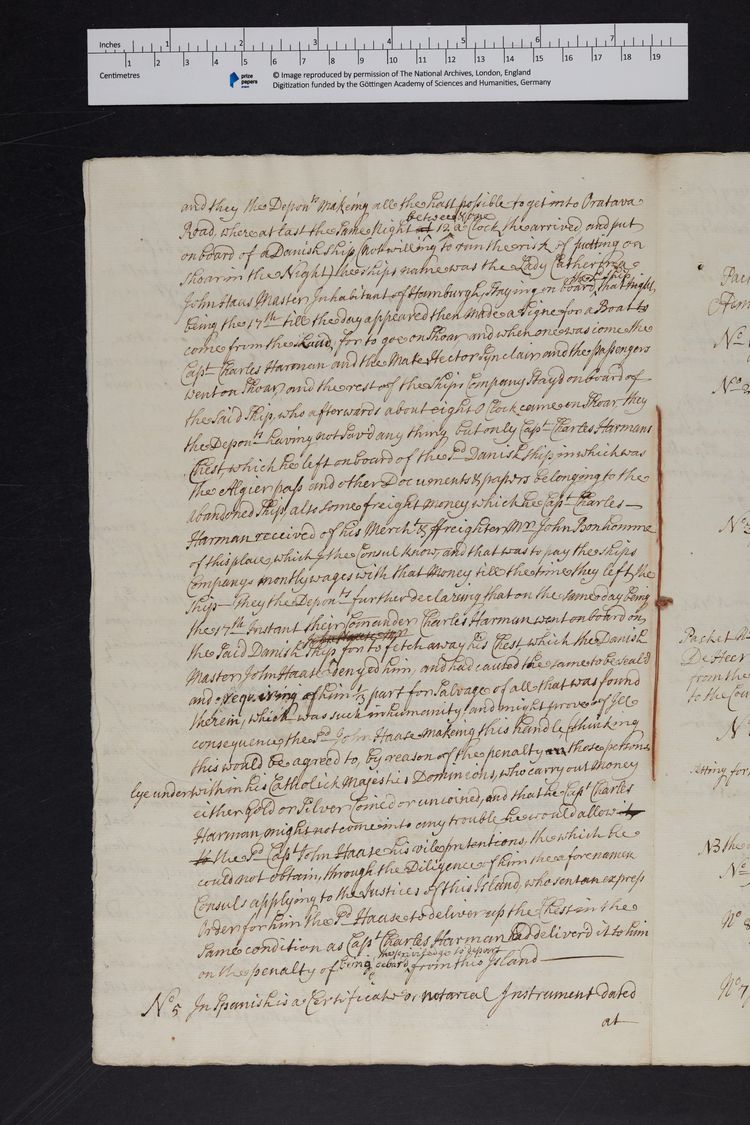 Inches 1 2 3 4 5 6 7
Centimetres 1 2 3 4 5 6 7 8 9 10 11 12 13 14 15 16 17 18 19
prize papers
© Image reproduced by permission of The National Archives, London, England
Digitization funded by the Göttingen Academy of Sciences and Humanities, Germany
and they the Depon.ts making all the hast possible to get into Oratava
Road, where at last the same Night at between 12 & one a Clock the arrived and put
on board of a Danish ship (not willing to run the risk of putting on
shoar in the Night) the ships name was the Lady Catherina
John Haas Master Inhabitant of Hamburgh, Staying on board the sd ship that night,
being the 17th till the day appeared then made a Signe for a Boat to
come from the Land, for to goe on Shoar and when one was come the
Capt Charles Harman and the Mate Hector Synclair and the passengers
went on Shoar, and the rest of the Ships Company Stayd on board of
the said Ship, who afterwards about eight o Clock came on Shoar, they
the Depon.ts having not Sav'd any thing but only Capt Charles Harmans
Chest, which he left on board of the sd Danish ship in which was
the Algier pass and other Documents & papers belonging to the
abandoned Ship also some freight money which he Capt Charles
Harman received of his Mercht & ffreighter Mr John Bonhomme
of this place, which I the Consul know, and that was to pay the ships
Companys montly wages with that Money till the time they left the
Ship— They the Depon.ts further declaring that on the same day being
the 17th Instant their Comander Charles Harman went on board on
the said Danish ship for to fetch away his Chest which the Danish
Master John Haase denyed him, and had caused the same to be seald
and requiring of him ⅓ part for Salvage of all that was found
therein, which was such inhumanity and might prove of Ill
consequence, the sd John Haase making this handle, thinking
this would be agreed to, by reason of the penalty those persons
lye under within his Catholick Majesties Dominions, who carry out Money
either Gold or Silver Coined or uncoined, and that he Capt Charles
Harman might not come into any trouble he would allow
to the sd Capt John Haase his vile pretentions, the which he
could not obtain, through the Diligence of him the aforenamen
Consuls applying to the Justices of this Island, who sent an express
Order for him the sd Haase to deliver up the Chest in the
same condition as Capt Charles Harman had deliverd it to him
on the penalty of being debard the priviledge to depart from this Island
No 5 In Spanish is a Certificate or notarial Instrument dated
at
Pac
No
No 2
No 3
Packet
De Heer
from the
to the Cou
No
setting for
NB the
No
No 8
No 7